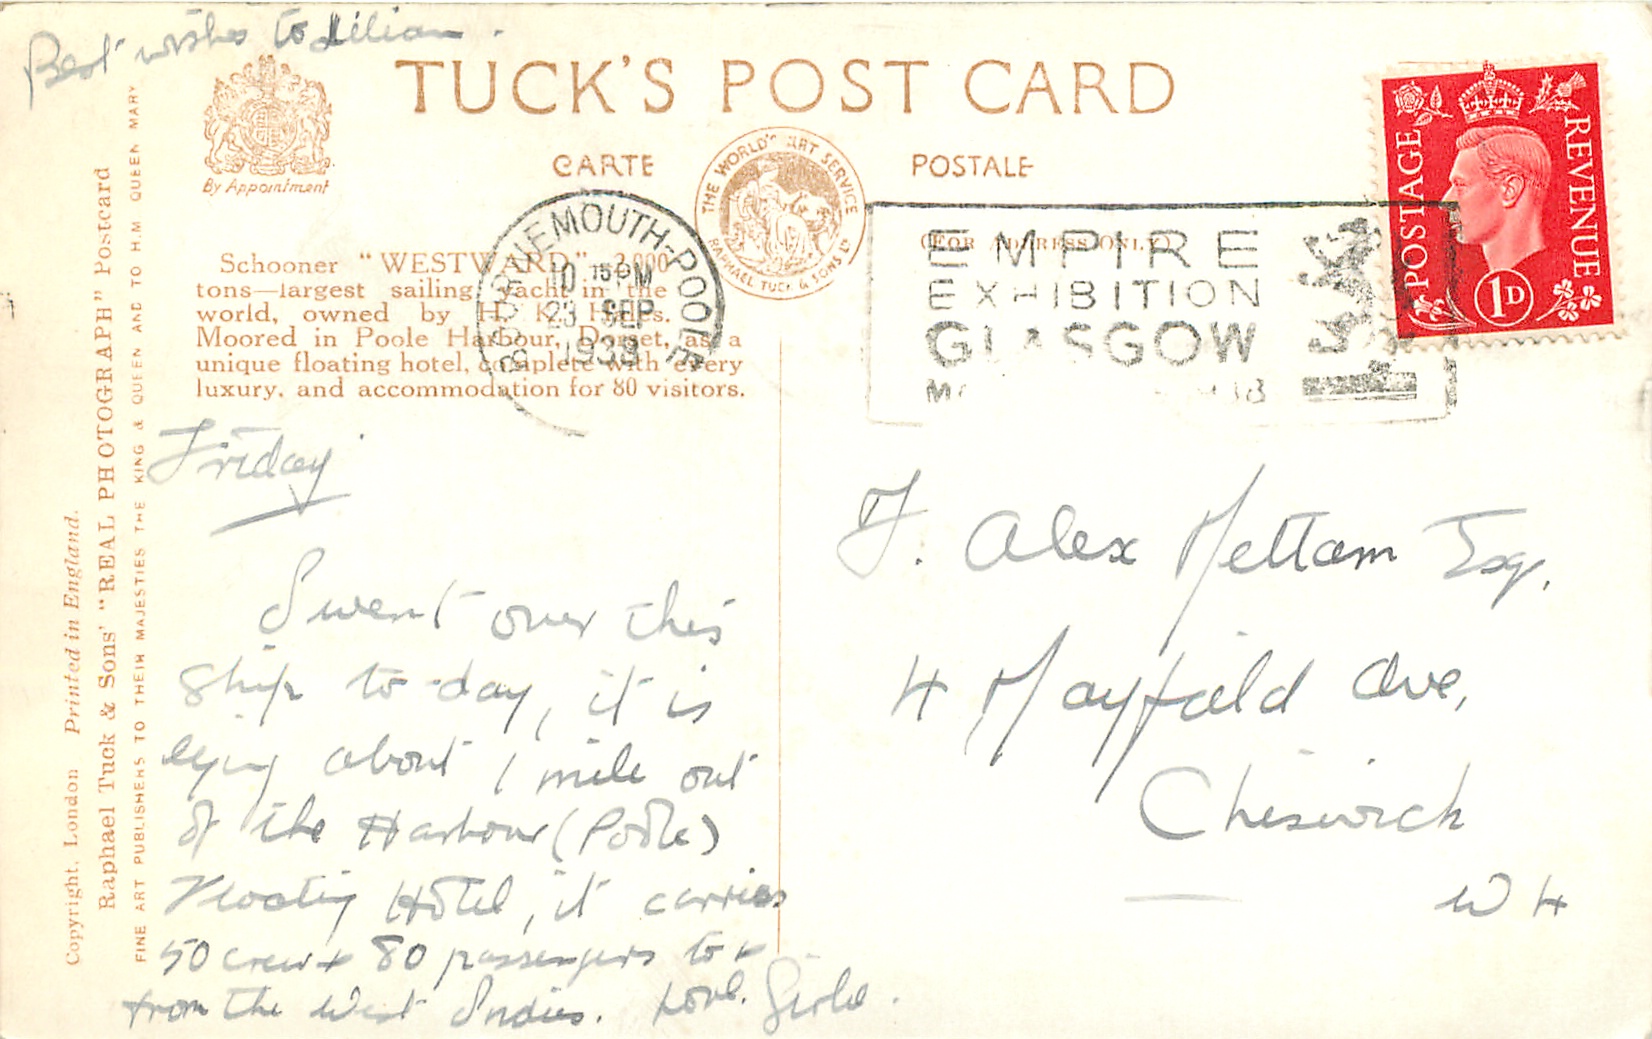 Best wishes to Lilian.
TUCK'S POST CARD
CARTE POSTALE
By Appointment
THE WORLD'S ART SERVICE
RAPHAEL TUCK & SONS LTD
(FOR ADDRESS ONLY)
POSTAGE REVENUE
1D
BOURNEMOUTH-POOLE
10 15 PM
23 SEP
1938
EMPIRE
EXHIBITION
GLASGOW
Schooner "WESTWARD" 2,000
tons—largest sailing yacht in the
world, owned by H. K. Hales.
Moored in Poole Harbour, Dorset, as a
unique floating hotel, complete with every
luxury, and accommodation for 80 visitors.
Copyright. London Printed in England.
Raphael Tuck & Sons' "REAL PHOTOGRAPH" Postcard
FINE ART PUBLISHERS TO THEIR MAJESTIES THE KING & QUEEN AND TO H.M QUEEN MARY
Friday
I went over this
ship to-day, it is
lying about 1 mile out
of the Harbour (Poole)
Floating Hotel, it carries
50 crew + 80 passengers to +
from the West Indies. Love.
F. Alex Mettam Esq.
4 Mayfield Ave,
Chiswick
W 4